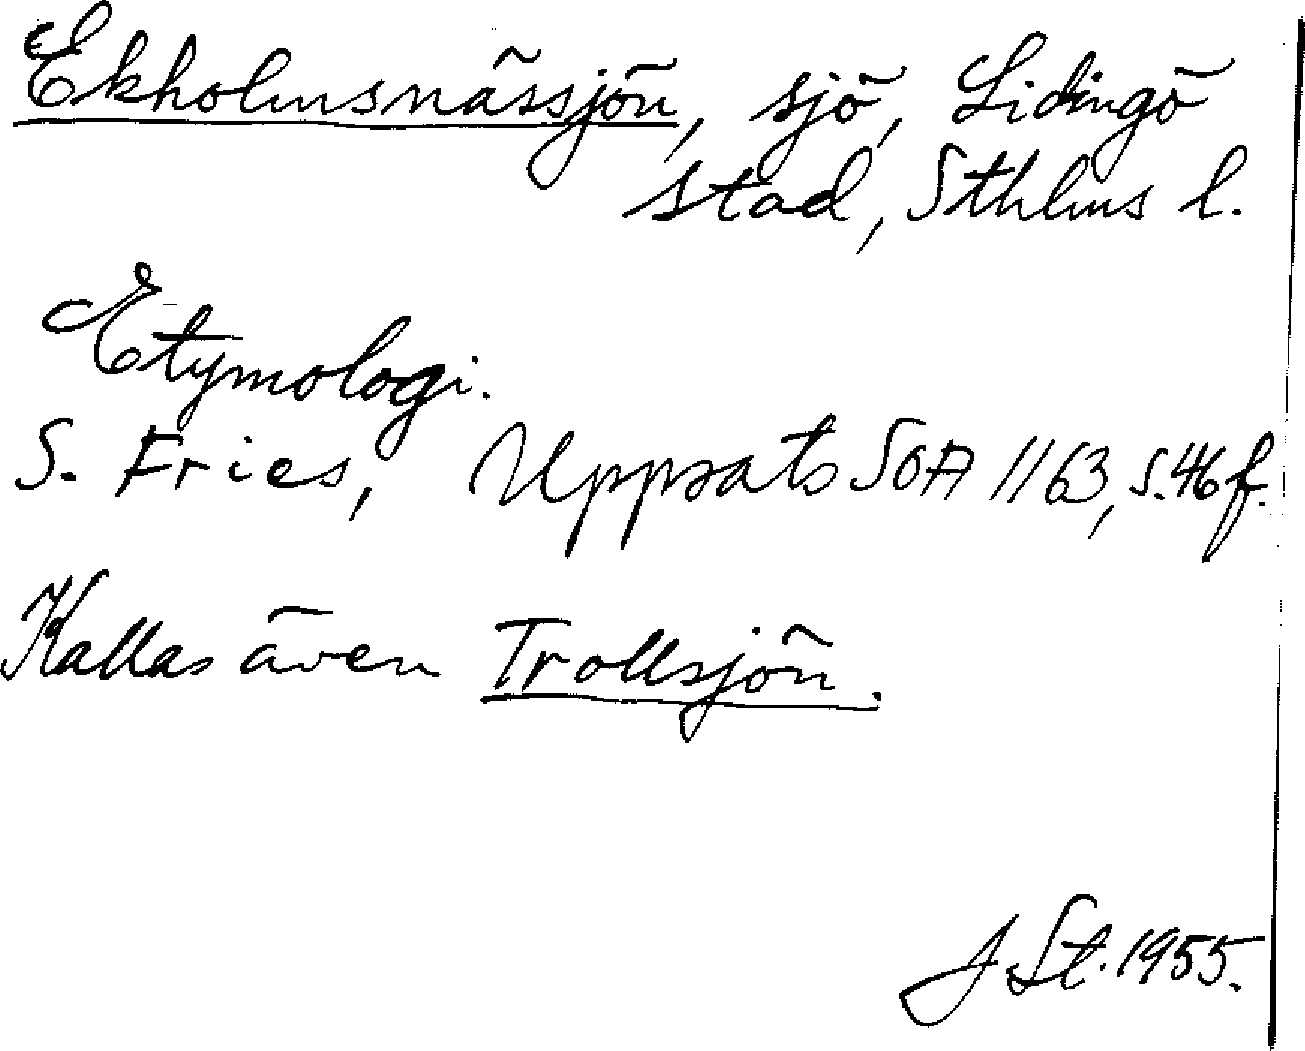 Ekholmsnässjön, sjö, Lidingö
stad, Sthlms l.
Etymologi.
S. Fries, Uppsats SOA 1163, s. 46 f.
Kallas även Trollsjön.
J. St. 1955.